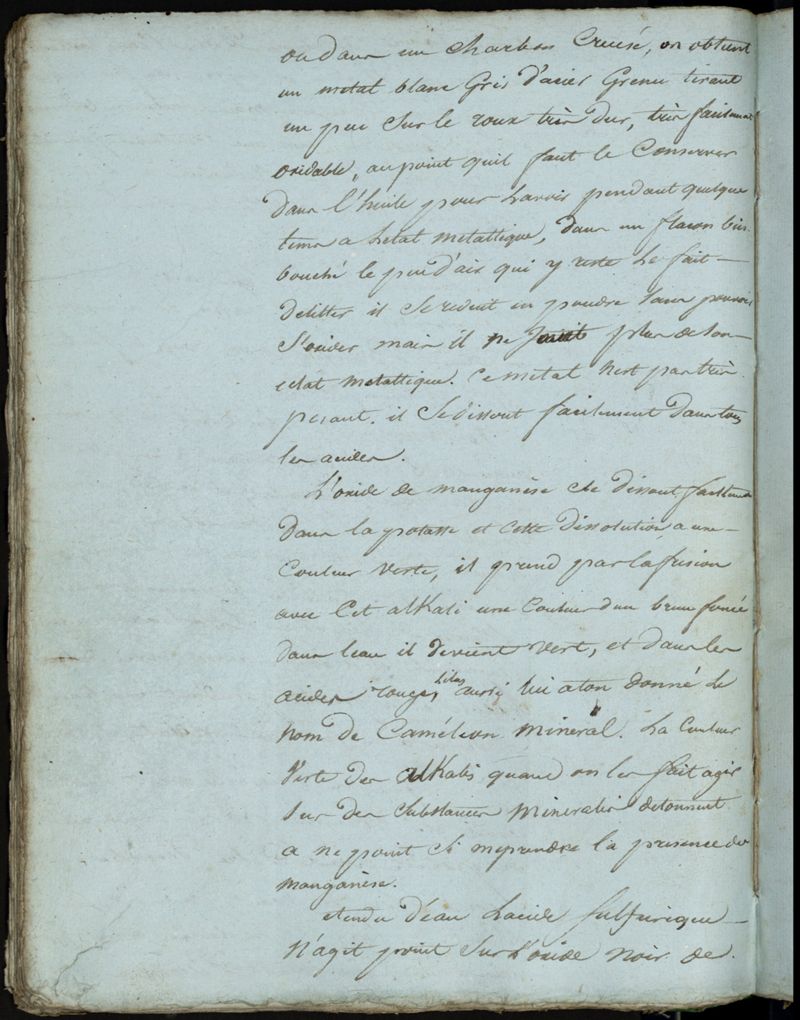 ou dans un charbon Creusé, on obtient
un metal blanc Gris d'acier Grenu tirant
un peu Sur le roux très dur, très facilement
oxidable, au point quil faut le Conserver
dans l'huile pour Lavoir pendant quelque
tems a Letat metallique, dans un flacon bien
bouché le peu d'air qui y reste Le fait
deliter il Se reduit en poudre Sans pouvoir
S'oxider mais il ne Jouit plus de Son
eclat metallique. Ce metal n'est pas très
pesant. il Se dissout facilement dans tous
les acides.
L'oxide de manganèse Se dissout facilement
Dans la potasse et Cette dissolution a une
Couleur verte, il prend par la fusion
avec Cet alkali une Couleur dun brun foncé
dans leau il devient vert, et dans les
acides rouge, lilas aussi lui aton donné Le
nom de Caméléon minéral. La Couleur
Verte des alkalis quand on les fait agir
Sur des Substances Minerales detonnent
a ne point Si meprendre la presence du
manganèse.
etendu d'eau Lacide Sulfurique
N'agit point Sur L'oxide noir de